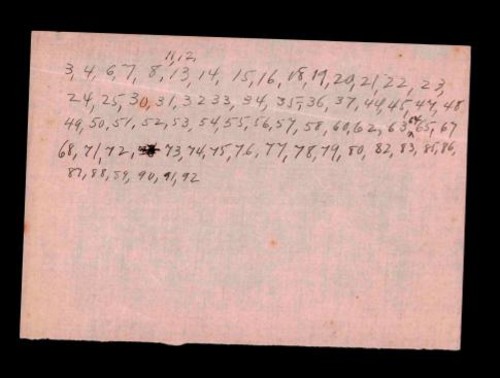 11, 12,
3, 4, 6, 7, 8, 13, 14, 15, 16, 18, 19, 20, 21, 22, 23,
24, 25, 30, 31, 32 33, 34, 35, 36, 37, 44, 45, 47, 48
49, 50, 51, 52, 53, 54, 55, 56, 57, 58, 60, 62, 63, 64, 65, 67
68, 71, 72, 73, 74, 75, 76, 77, 78, 79, 80, 82, 83, 85, 86,
87, 88, 89, 90, 91, 92